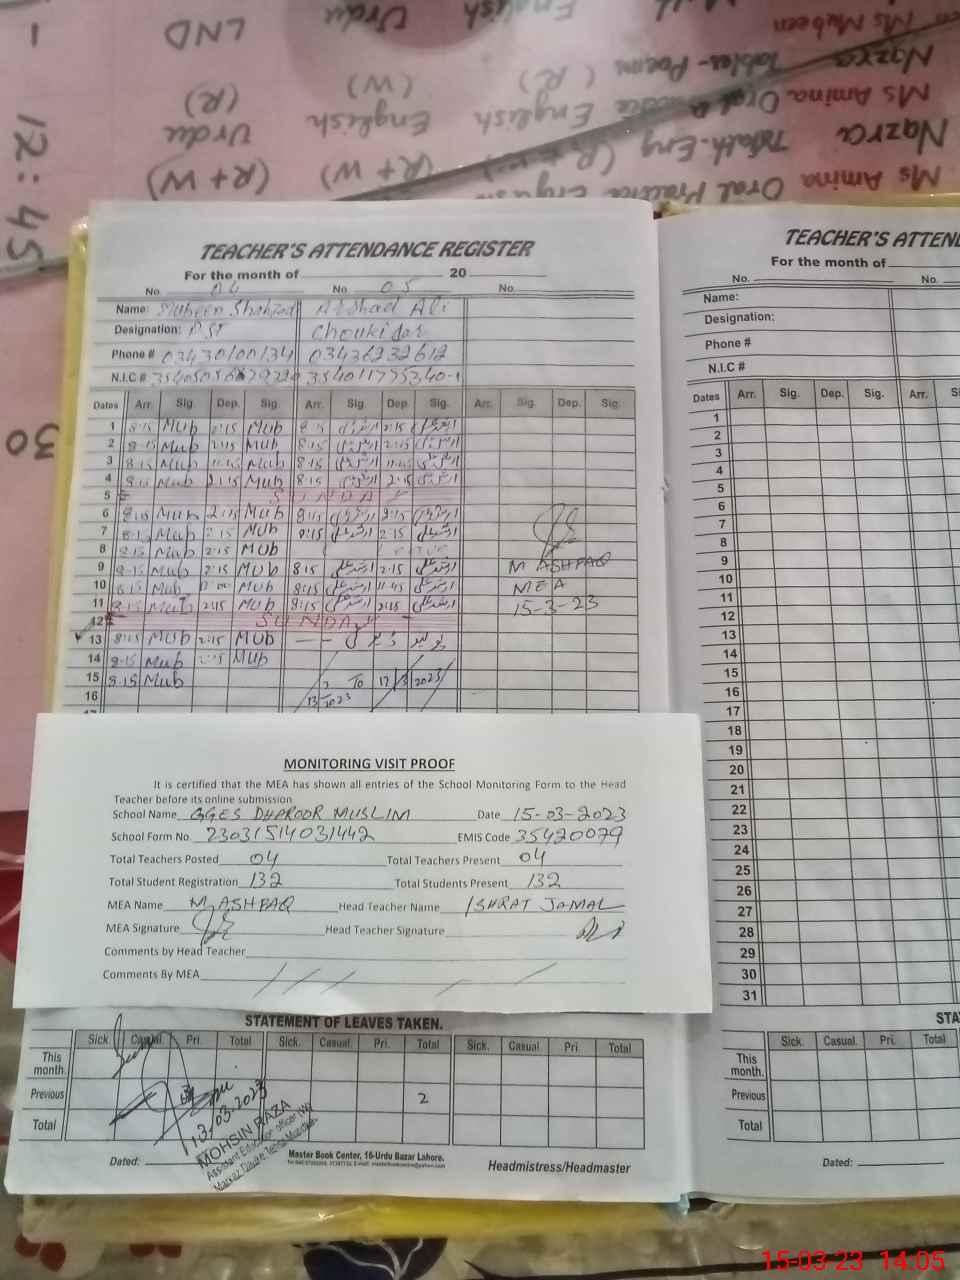 Ms Mubeen English Urdu LND 1
Nazra Tables-Poem (R) (W) (R)
Ms Amina Oral English English Urdu 12:45
Nazra Math-Eng (R+W) (R+W) (R+W)
Ms Amina Oral Practice
30
TEACHER'S ATTENDANCE REGISTER
For the month of 20
No. 04 No. 05 No.
Name: Mubeen Shahzad Arshad Ali
Designation: PST Choukidar
Phone # 03430100134 03436232612
N.I.C #
Dates Arr. Sig. Dep. Sig. Arr. Sig. Dep. Sig. Arr. Sig. Dep. Sig.
1 8:15 Mub 2:15 Mub 8:15 ارشد علی 2:15 ارشد علی
2 8:15 Mub 2:15 Mub 8:15 ارشد علی 2:15 ارشد علی
3 8:15 Mub 11:45 Mub 8:15 ارشد علی 11:45 ارشد علی
4 8:15 Mub 2:15 Mub 8:15 ارشد علی 2:15 ارشد علی
5 SUNDAY
6 8:15 Mub 2:15 Mub 8:15 ارشد علی 2:15 ارشد علی
7 8:15 Mub 2:15 Mub 8:15 ارشد علی 2:15 ارشد علی
8 8:15 Mub 2:15 Mub
9 8:15 Mub 2:15 Mub 8:15 ارشد علی 2:15 ارشد علی M ASHFAQ
10 8:15 Mub Mub 8:15 ارشد علی 11:45 ارشد علی MEA
11 8:15 Mub 2:15 Mub 8:15 ارشد علی 2:15 ارشد علی 15-3-23
12 SUNDAY
13 8:15 Mub 2:15 Mub
14 8:15 Mub 2:15 Mub
15 8:15 Mub To 17/3/2023
16 13 2023
MONITORING VISIT PROOF
It is certified that the MEA has shown all entries of the School Monitoring Form to the Head
Teacher before its online submission
School Name GGES DHAROOR MUSLIM Date 15-03-2023
School Form No. 23031514031442 EMIS Code 35420079
Total Teachers Posted 04 Total Teachers Present 04
Total Student Registration 132 Total Students Present 132
MEA Name M ASHFAQ Head Teacher Name ISHRAT JAMAL
MEA Signature Head Teacher Signature
Comments by Head Teacher
Comments By MEA
STATEMENT OF LEAVES TAKEN.
Sick. Casual. Pri. Total Sick. Casual. Pri. Total Sick. Casual. Pri. Total
This month.
Previous 2
Total
13.03.2023
MOHSIN RAZA
Assistant Education officer (W)
Dated:
Master Book Center, 16-Urdu Bazar Lahore.
Headmistress/Headmaster
TEACHER'S ATTEN
For the month of
No. No.
Name:
Designation:
Phone #
N.I.C #
Dates Arr. Sig. Dep. Sig. Arr.
1
2
3
4
5
6
7
8
9
10
11
12
13
14
15
16
17
18
19
20
21
22
23
24
25
26
27
28
29
30
31
STA
Sick. Casual. Pri. Total
This month.
Previous
Total
Dated:
15-03-23 14:05